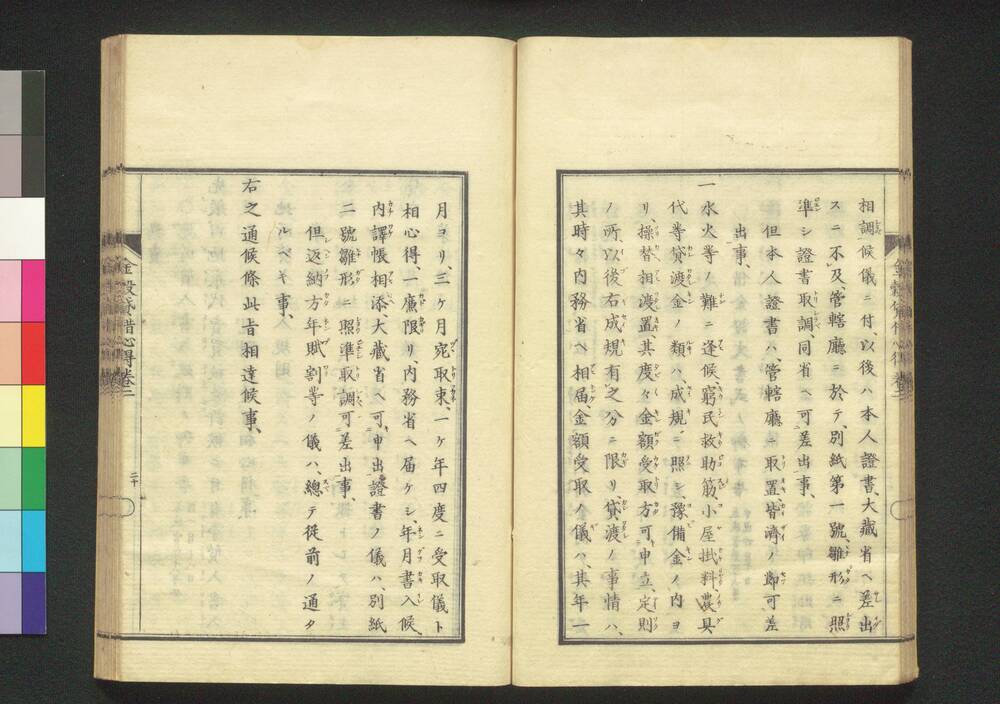 相調候儀ニ付、以後ハ本人證書、大藏省ヘ差出
スニ不及管轄廳ニ於テ、別紙第一號雛形ニ照
準シ證書取調、同省ヘ可差出事、
但本人證書ハ、管轄廳ニ取置、皆濟ノ節可差
出事、
一水火等ノ難ニ逢候、窮民救助筋、小屋掛料、農具
代等貸渡金ノ類ハ、成規ニ照シ、豫備金ノ内ヨ
リ、操替相渡置其度々金額受取方可申立、定則
ノ所、以後右成規有之分ニ限リ、貸渡ノ事情ハ、
其時々内務省ヘ相届、金額受取ノ儀ハ、其年一
月ヨリ、三ヶ月宛取束、一ヶ年四度ニ受取儀ト
相心得、一廉限リ、内務省ヘ届ケシ、年月書入候、
内譯帳相添、大藏省ヘ可申出證書ノ儀ハ、別紙
二號雛形ニ照準取調可差出事、
但返納方年賦割等ノ儀ハ、總テ從前ノ通タ
ルベキ事、
右之通候條此旨相達候事、
金穀貸借心得卷二
二十